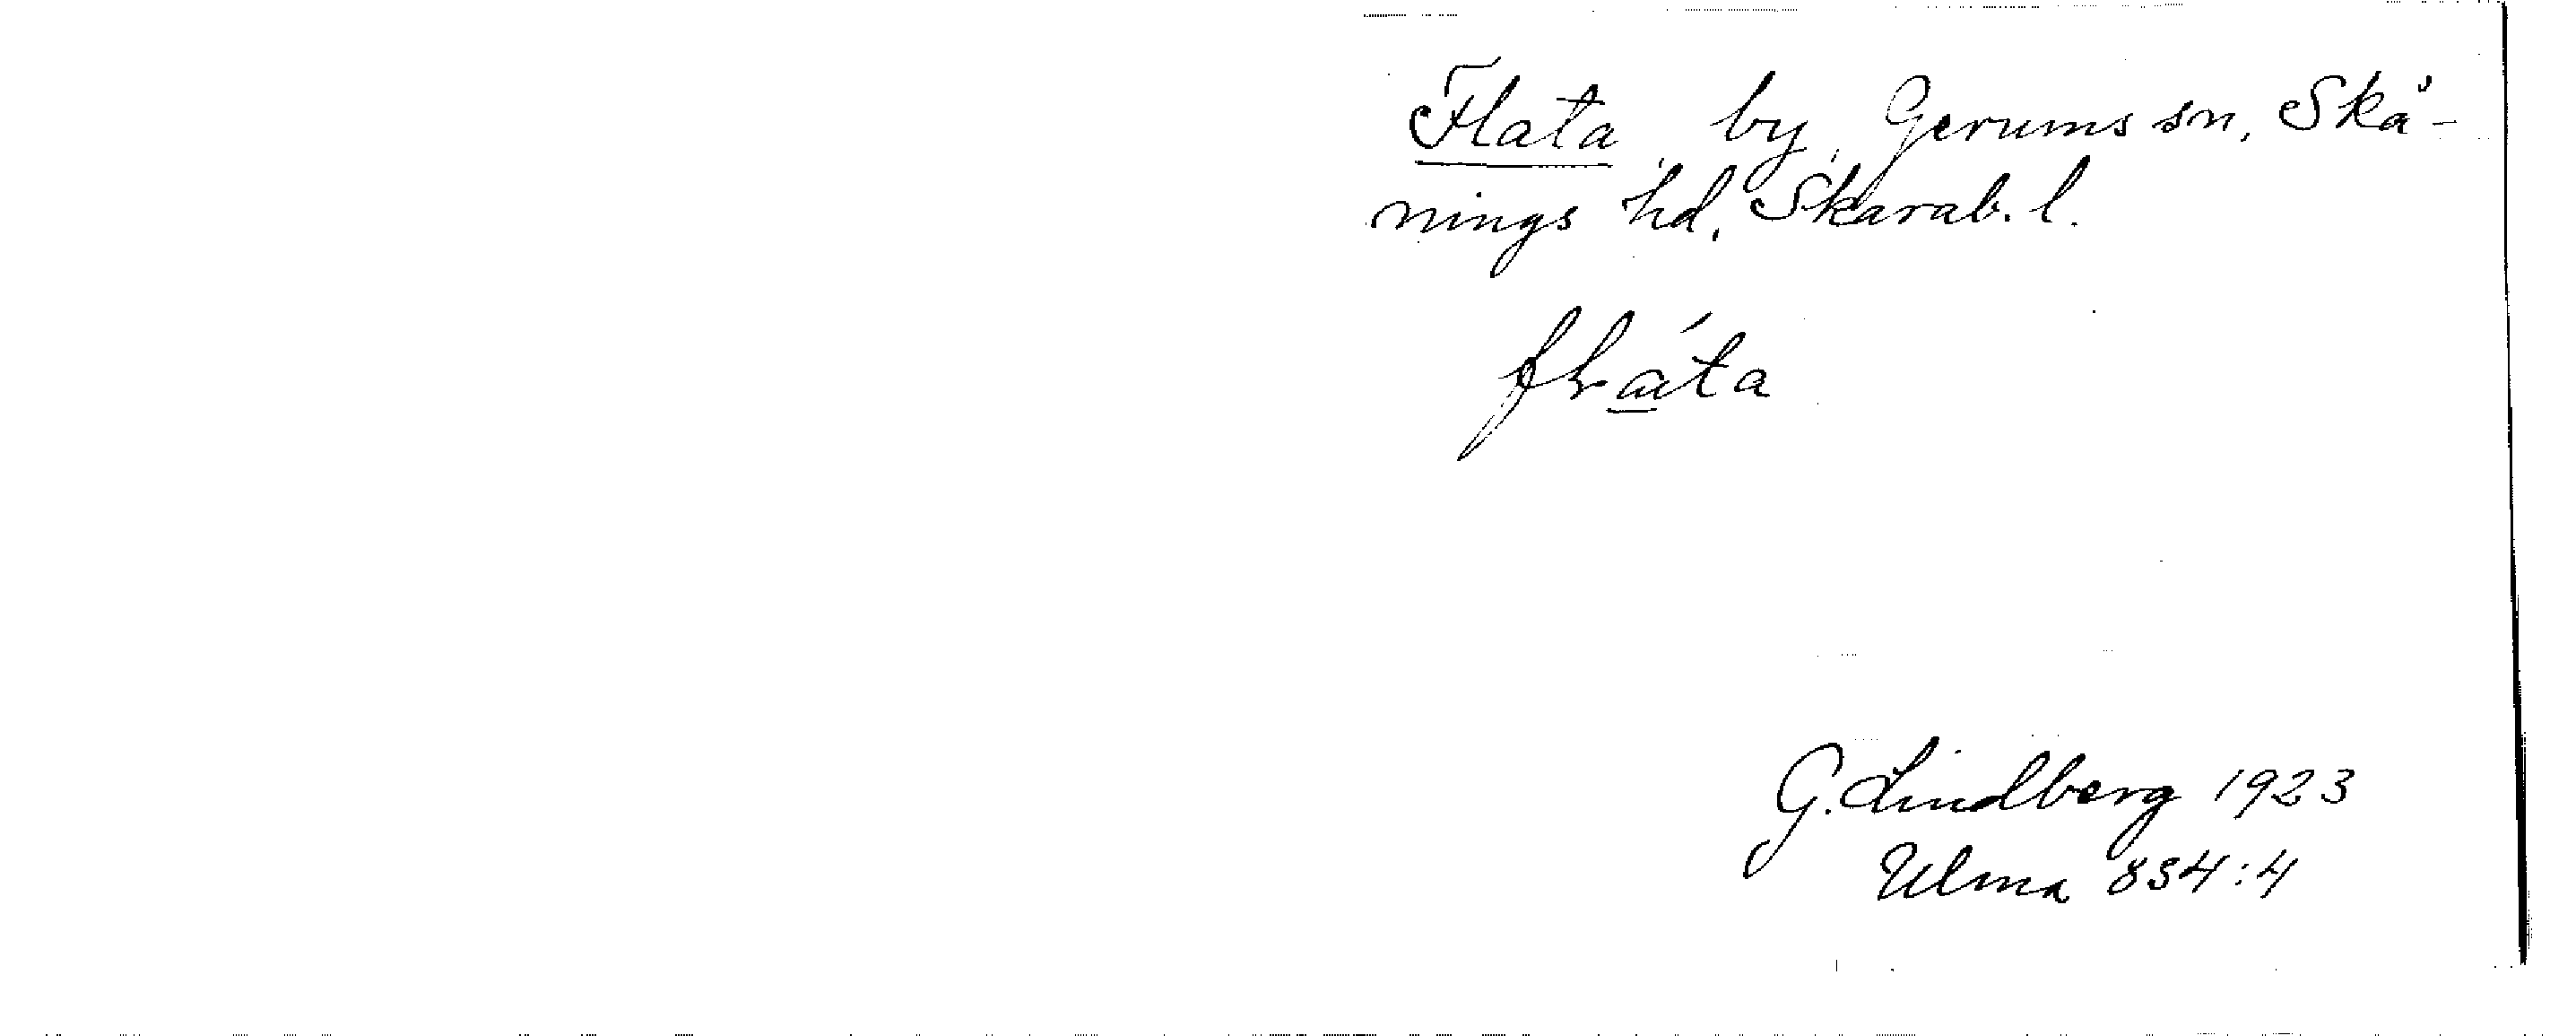 Flata, by, Gerums sn, Skå-
nings hd, Skarab. l.
flata
G. Lindberg 1923
Ulma 834:4